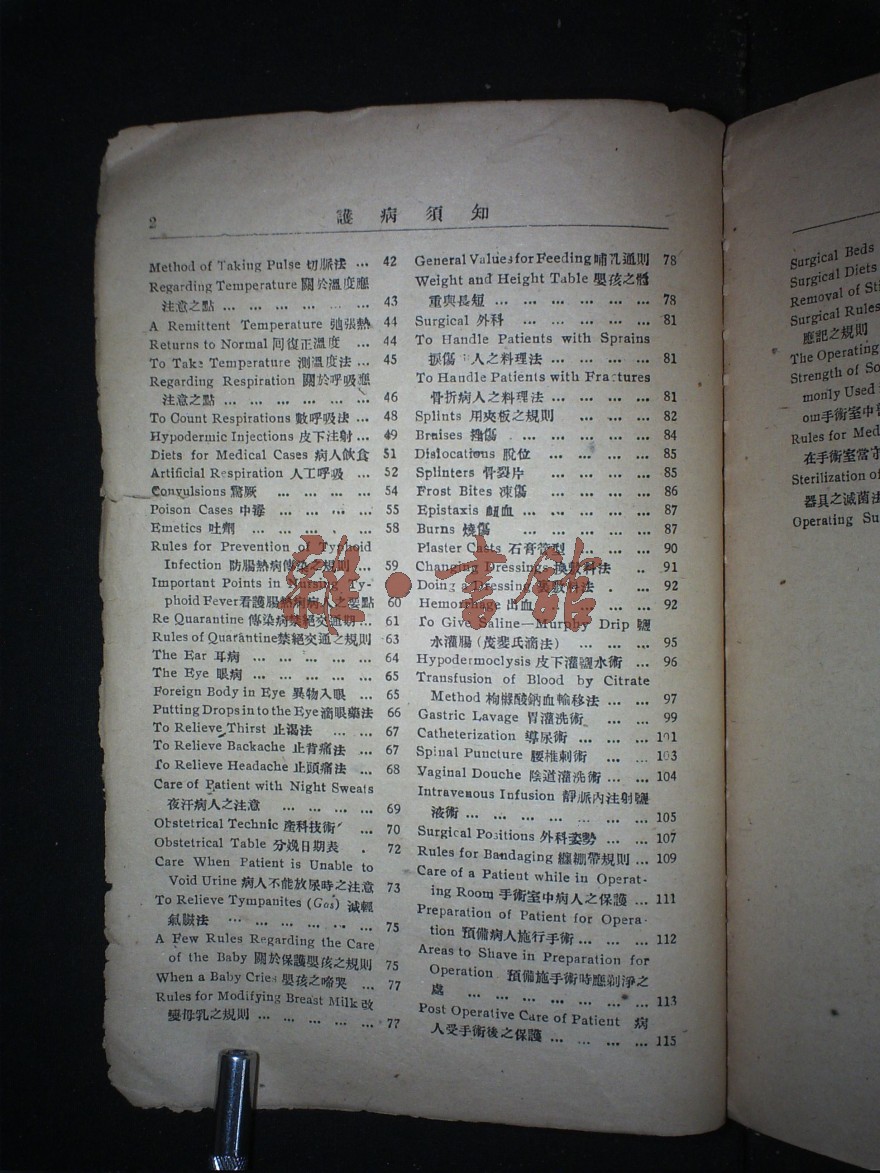 2
護病須知
Method of Taking Pulse 切脈法 ... 42
Regarding Temperature 關於溫度應
注意之點 ... ... ... ... ... 43
A Remittent Temperature 弛張熱 44
Returns to Normal 回復正溫度 ... 44
To Take Temperature 測溫度法 ... 45
Regarding Respiration 關於呼吸應
注意之點 ... ... ... ... ... 46
To Count Respirations 數呼吸法 ... 48
Hypodermic Injections 皮下注射 ... 49
Diets for Medical Cases 病人飲食 51
Artificial Respiration 人工呼吸 ... 52
Convulsions 驚厥 ... ... ... ... 54
Poison Cases 中毒 ... ... ... ... 55
Emetics 吐劑 ... ... ... ... ... 58
Rules for Prevention of Typhoid
Infection 防腸熱病傳染之規則 ... 59
Important Points in Nursing Ty-
phoid Fever 看護腸熱病病人之要點 60
Re Quarantine 傳染病禁絕交通期 ... 61
Rules of Quarantine 禁絕交通之規則 63
The Ear 耳病 ... ... ... ... ... 64
The Eye 眼病 ... ... ... ... ... 65
Foreign Body in Eye 異物入眼 ... ... 65
Putting Drops in to the Eye 滴眼藥法 66
To Relieve Thirst 止渴法 ... ... 67
To Relieve Backache 止背痛法 ... 67
To Relieve Headache 止頭痛法 ... 68
Care of Patient with Night Sweats
夜汗病人之注意 ... ... ... ... 69
Obstetrical Technic 產科技術 ... 70
Obstetrical Table 分娩日期表 . 72
Care When Patient is Unable to
Void Urine 病人不能放尿時之注意 73
To Relieve Tympanites (Gas) 減輕
氣臌法 ... ... ... ... ... 75
A Few Rules Regarding the Care
of the Baby 關於保護嬰孩之規則 75
When a Baby Cries 嬰孩之啼哭 ... 77
Rules for Modifying Breast Milk 改
變母乳之規則 ... ... ... ... ... 77
General Values for Feeding 哺乳通則 78
Weight and Height Table 嬰孩之體
重與長短 ... ... ... ... ... ... 78
Surgical 外科 ... ... ... ... 81
To Handle Patients with Sprains
捩傷 人之料理法 ... ... ... ... 81
To Handle Patients with Fractures
骨折病人之料理法 ... ... ... ... 81
Splints 用夾板之規則 ... ... ... 82
Bruises 傷 ... ... ... ... ... 84
Dislocations 脫位 ... ... ... ... 85
Splinters 骨裂片 ... ... ... ... 85
Frost Bites 凍傷 ... ... ... ... 86
Epistaxis 衄血 ... ... ... ... ... 87
Burns 燒傷 ... ... ... ... ... 87
Plaster Casts 石膏管型 ... ... ... 90
Changing Dressings 換敷料法 .. 91
Doing a Dressing 裹敷料法 . ... 92
Hemorrhage 出血 ... ... ... ... 92
To Give Saline—Murphy Drip 鹽
水灌腸 (茂斐氏滴法) ... ... ... 95
Hypodermoclysis 皮下灌鹽水術 ... 96
Transfusion of Blood by Citrate
Method 枸櫞酸鈉血輸移法 ... ... 97
Gastric Lavage 胃灌洗術 ... ... 99
Catheterization 導尿術 ... ... ... 101
Spinal Puncture 腰椎刺術 ... ... 103
Vaginal Douche 陰道灌洗術 ... ... 104
Intravenous Infusion 靜脈內注射鹽
液術 ... ... ... ... ... ... ... 105
Surgical Positions 外科姿勢 ... ... 107
Rules for Bandaging 纏綳帶規則 ... 109
Care of a Patient while in Operat-
ing Room 手術室中病人之保護 ... 111
Preparation of Patient for Opera-
tion 預備病人施行手術 ... ... ... 112
Areas to Shave in Preparation for
Operation 預備施手術時應剃淨之
處 ... ... ... ... ... ... ... 113
Post Operative Care of Patient 病
人受手術後之保護 ... ... ... ... 115
Surgical Beds
Surgical Diets
Removal of Sti
Surgical Rules
應記之規則
The Operating
Strength of So
monly Used i
om 手術室中
Rules for Med
在手術室當守
Sterilization of
器具之滅菌法
Operating Su
雜·書館